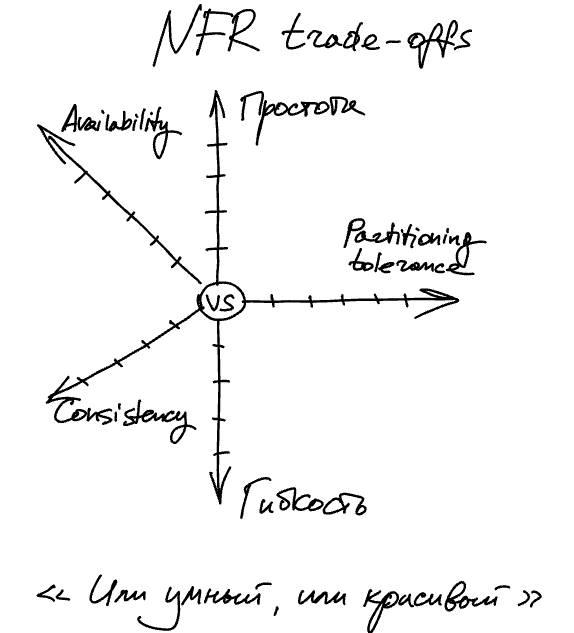 NFR trade-offs
Availability
Простота
Partitioning
tolerance
VS
Consistency
Гибкость
<< Или умный, или красивый >>